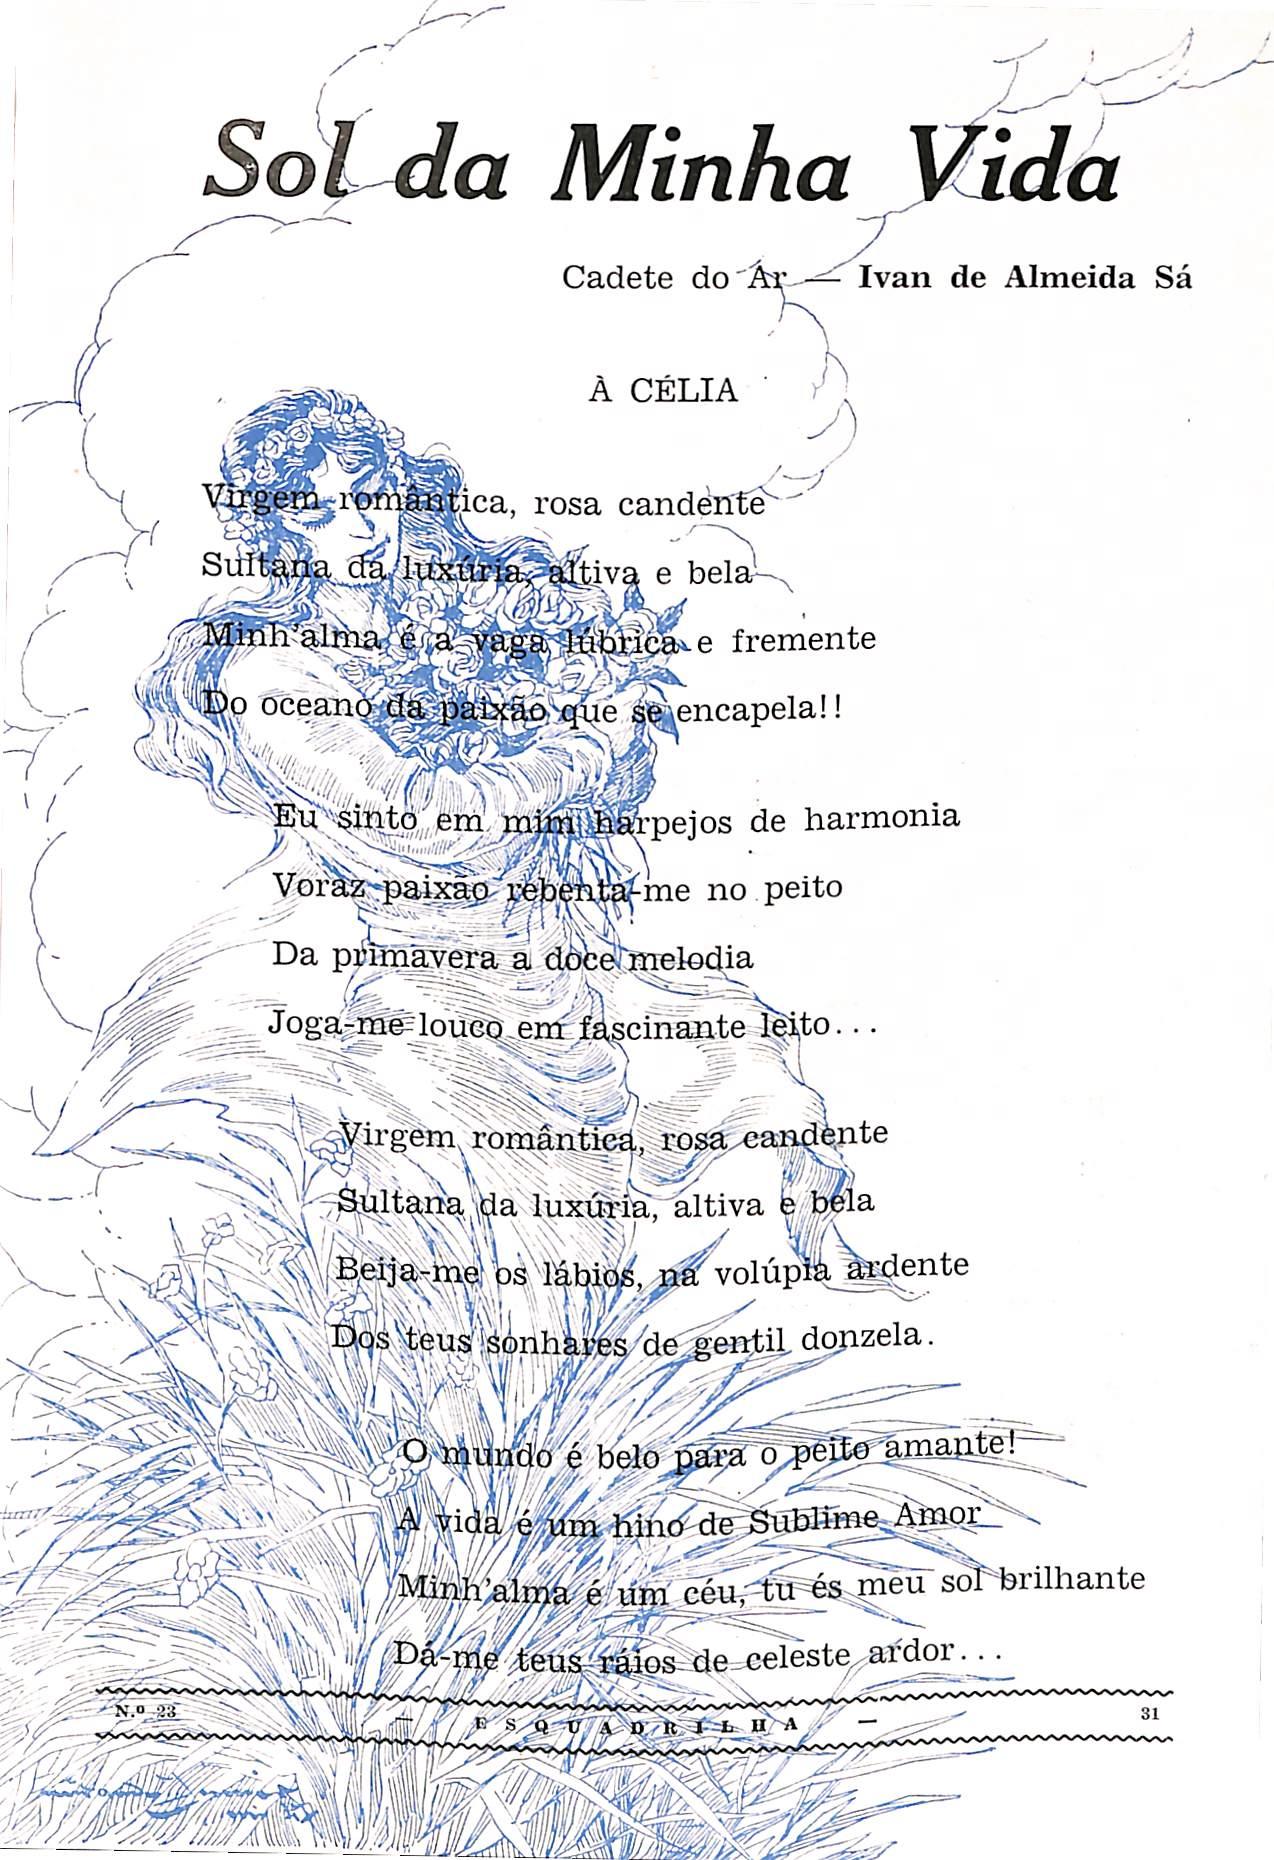 Sol da Minha Vida
Cadete do Ar — Ivan de Almeida Sá
À CÉLIA
Virgem romântica, rosa candente
Sultana da luxúria, altiva e bela
Minh'alma é a vaga lúbrica e fremente
Do oceano da paixão que se encapela!!
Eu sinto em mim harpejos de harmonia
Voraz paixão rebenta-me no peito
Da primavera a doce melodia
Joga-me louco em fascinante leito...
Virgem romântica, rosa candente
Sultana da luxúria, altiva e bela
Beija-me os lábios, na volúpia ardente
Dos teus sonhares de gentil donzela.
O mundo é belo para o peito amante!
A vida é um hino de Sublime Amor
Minh'alma é um céu, tu és meu sol brilhante
Dá-me teus ráios de celeste ardor...
N.º 23 — ESQUADRILHA — 31